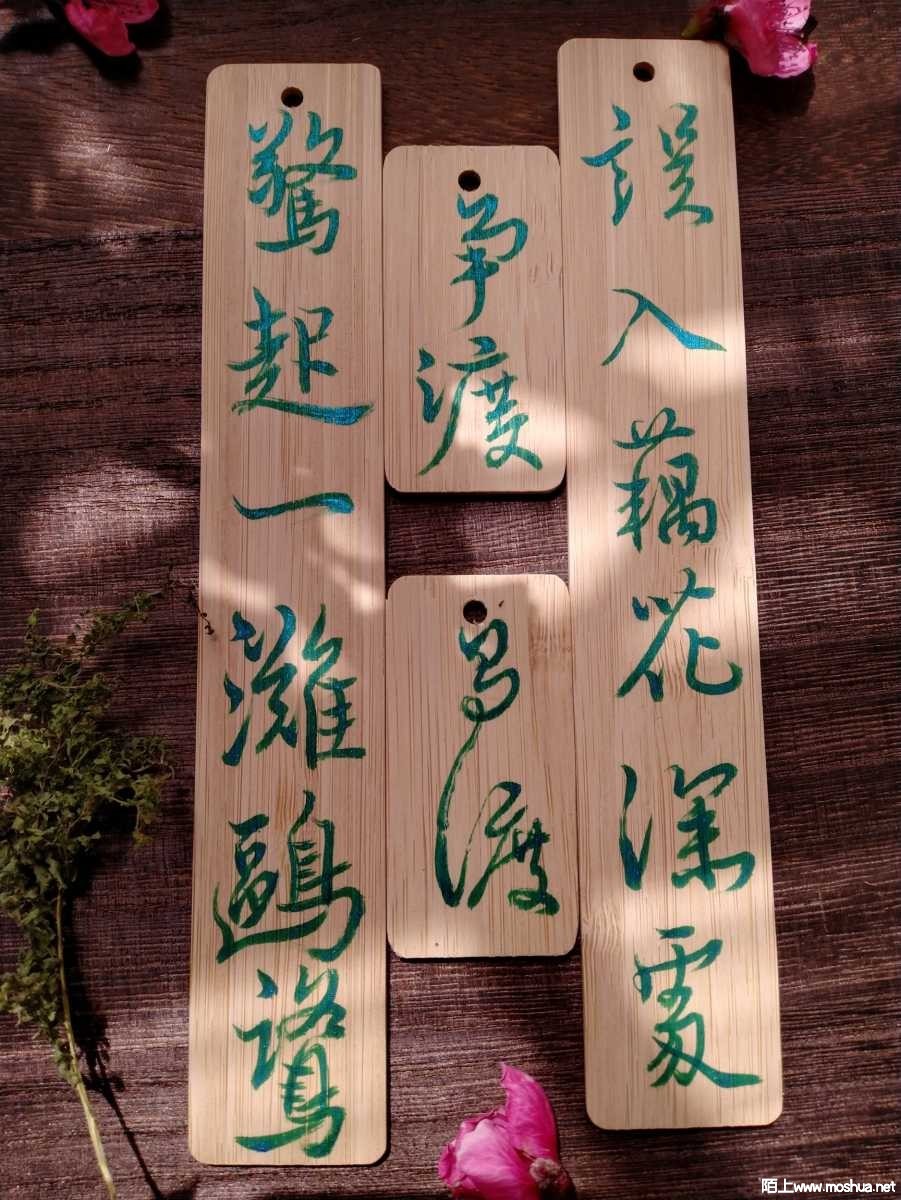 誤入藕花深處
争渡
争渡
驚起一灘鷗鷺
陌上www.moshua.net